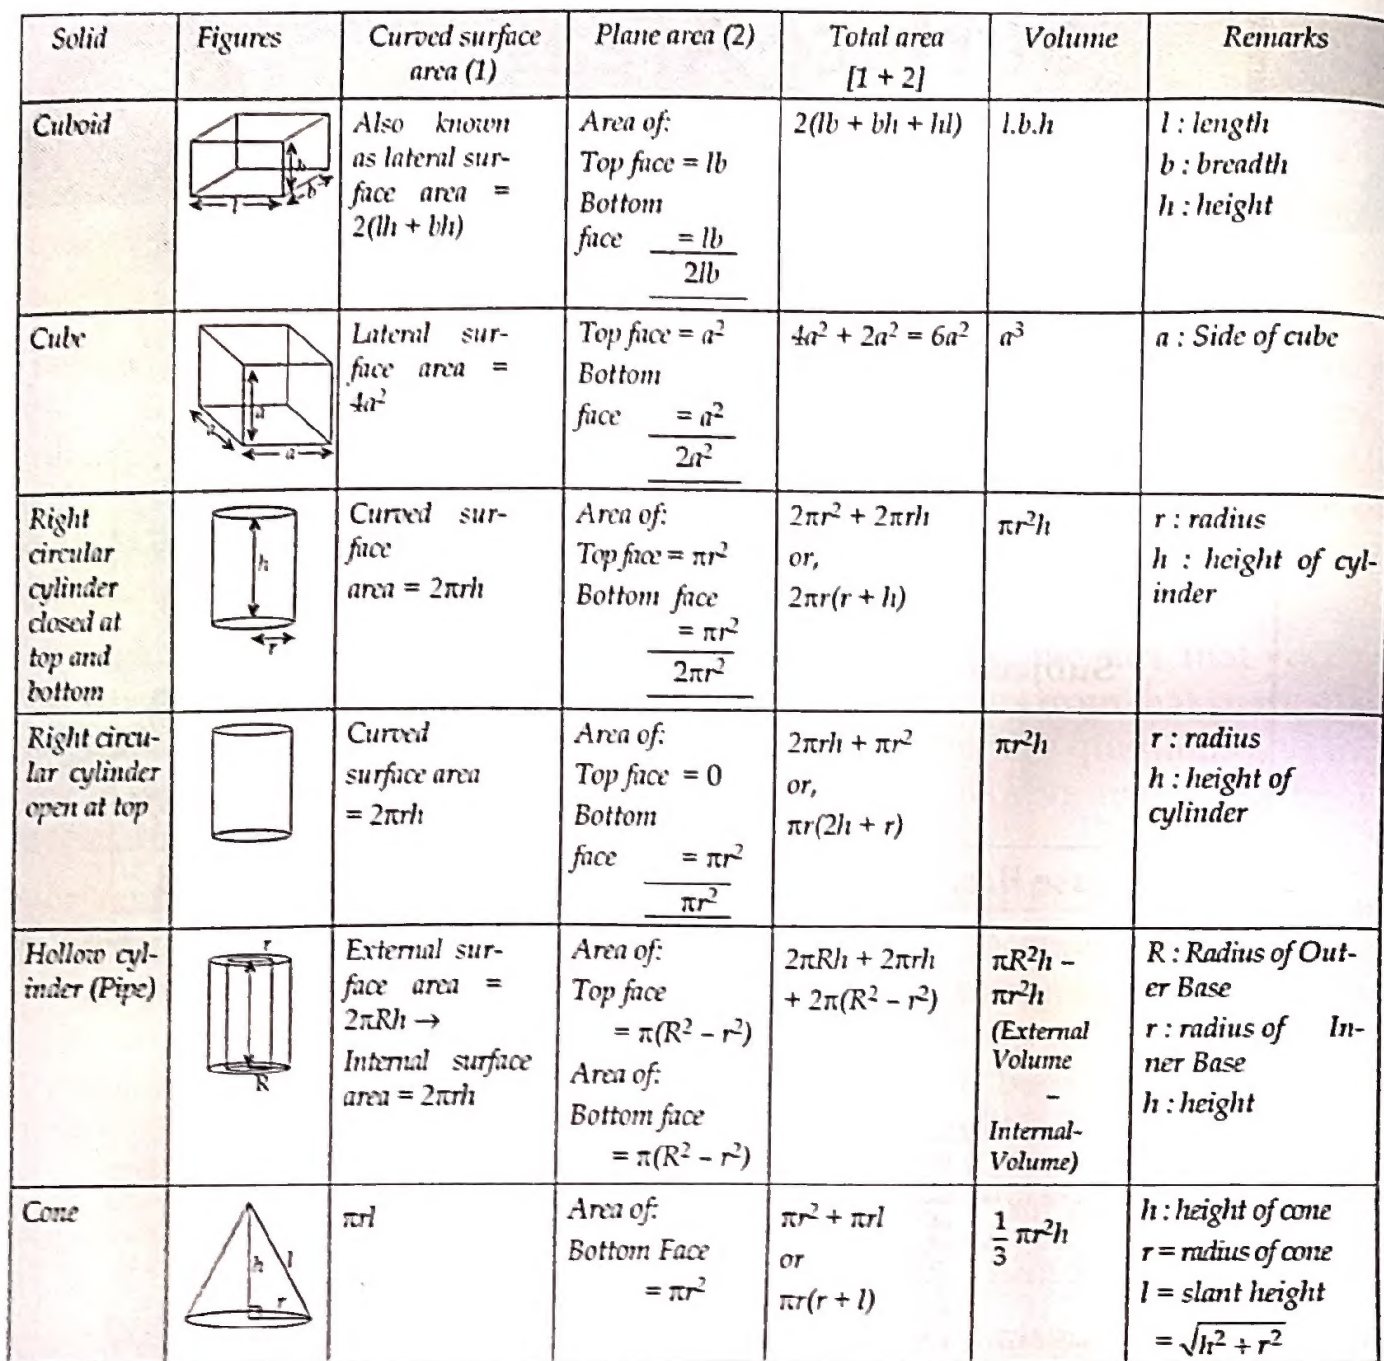 Solid
Figures
Curved surface
area (1)
Plane area (2)
Total area
[1 + 2]
Volume
Remarks
Cuboid
h
b
l
Also known
as lateral sur-
face area =
2(lh + bh)
Area of:
Top face = lb
Bottom
face = lb
2lb
2(lb + bh + hl)
l.b.h
l : length
b : breadth
h : height
Cube
a
a
a
Lateral sur-
face area =
4a²
Top face = a²
Bottom
face = a²
2a²
4a² + 2a² = 6a²
a³
a : Side of cube
Right
circular
cylinder
closed at
top and
bottom
h
r
Curved sur-
face
area = 2πrh
Area of:
Top face = πr²
Bottom face
= πr²
2πr²
2πr² + 2πrh
or,
2πr(r + h)
πr²h
r : radius
h : height of cyl-
inder
Right circu-
lar cylinder
open at top
Curved
surface area
= 2πrh
Area of:
Top face = 0
Bottom
face = πr²
πr²
2πrh + πr²
or,
πr(2h + r)
πr²h
r : radius
h : height of
cylinder
Hollow cyl-
inder (Pipe)
r
R
External sur-
face area =
2πRh →
Internal surface
area = 2πrh
Area of:
Top face
= π(R² – r²)
Area of:
Bottom face
= π(R² – r²)
2πRh + 2πrh
+ 2π(R² – r²)
πR²h –
πr²h
(External
Volume
–
Internal-
Volume)
R : Radius of Out-
er Base
r : radius of In-
ner Base
h : height
Cone
h
l
r
πrl
Area of:
Bottom Face
= πr²
πr² + πrl
or
πr(r + l)
1/3 πr²h
h : height of cone
r = radius of cone
l = slant height
= √(h² + r²)